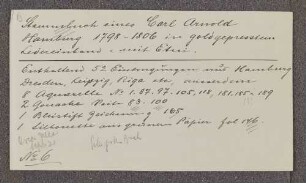 Stammbuch eines Carl Arnold
Hamburg 1798-1806 in goldgepresstem
Ledereinband - mit Etui.
Enthaltend 52 Eintragungen aus Hamburg
Dresden, Leipzig, Riga etc. ausserdem
8 Aquarelle No 1. 87. 97. 105. 118, 151. 155-159
2 Gouache Seite 83. 100
1 Bleistift Zeichnung 165
1 Silhouette aus gennem Papier fol 146.
No 6